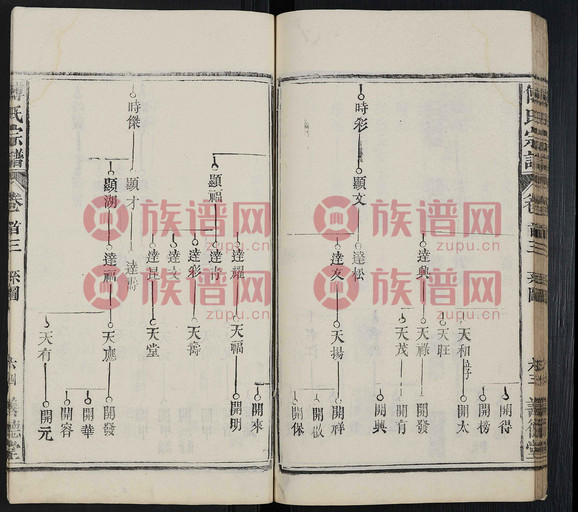 時彩
顯文
達興
達松
達友
天和
天旺
天祿
天茂
天揚
開得
開榜
開太
開發
開有
開興
開祥
開啟
開保
氏宗譜
卷首三
系圖
時傑
顯福
顯才
顯湖
達耀
達青
達彩
達文
達昆
達壽
達福
天福
天壽
天堂
天應
天有
開來
開明
開發
開華
開容
開元
氏宗譜
卷首三
系圖
德堂
族谱网
zupu.cn
族谱网
zupu.cn
族谱网
zupu.cn
族谱网
zupu.cn